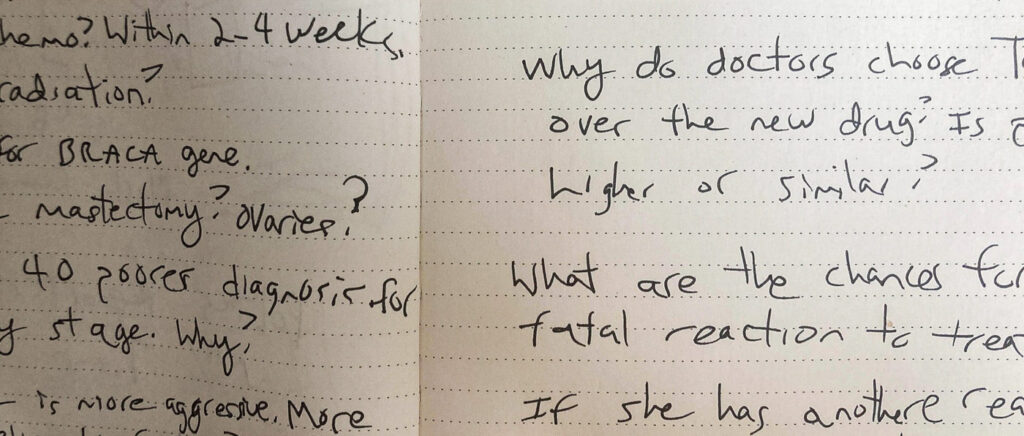 hemo? Within 2-4 weeks.
radiation?
for BRACA gene.
- mastectomy? ovaries?
40 poores diagnosis for
y stage. Why?
- is more aggressive. More
Why do doctors choose T
over the new drug? Is
higher or similar?
What are the chances for
fatal reaction to trea
If she has anothere rea